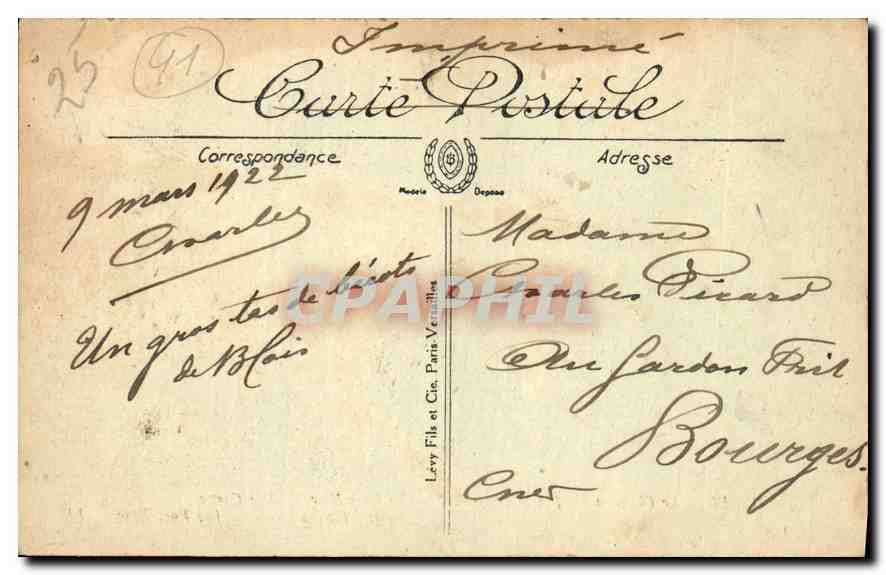 Imprimé
25
41
Carte Postale
Correspondance
Adresse
Modèle Déposé
9 mars 1922
Charles
Un gros tas de bécots
de Blois
Lévy Fils et Cie, Paris-Versailles
Madame
Charles Picard
Au Gardon Frit
Bourges.
Cher
CPAPHIL